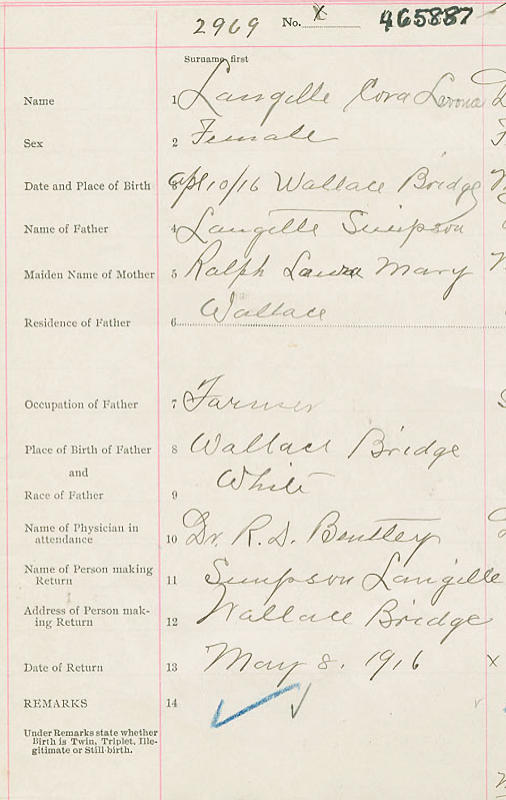 2969 No. X 465887
Surname first
Name 1 Langille Cora Lerona
Sex 2 Female
Date and Place of Birth 3 Apl 10/16 Wallace Bridge
Name of Father 4 Langille Simpson
Maiden Name of Mother 5 Ralph Laura Mary
Residence of Father 6 Wallace
Occupation of Father 7 Farmer
Place of Birth of Father 8 Wallace Bridge
and
Race of Father 9 White
Name of Physician in
attendance 10 Dr. R. D. Bentley
Name of Person making
Return 11 Simpson Langille
Address of Person mak-
ing Return 12 Wallace Bridge
Date of Return 13 May 8. 1916 x
REMARKS 14
Under Remarks state whether
Birth is Twin, Triplet, Ille-
gitimate or Still-birth.